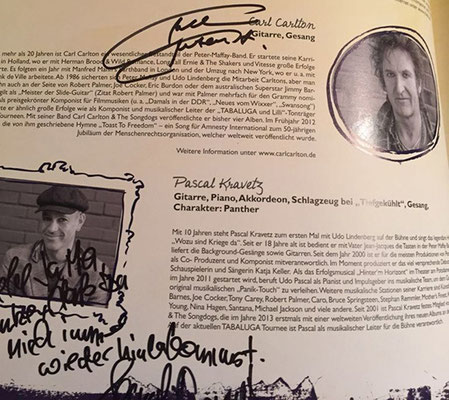 Carl Carlton
Gitarre, Gesang
mehr als 20 Jahren ist Carl Carlton ein wesentlicher Bestandteil der Peter-Maffay-Band. Er startete seine Karri-
in Holland, wo er mit Herman Brood & Wild Romance, Long Tall Ernie & The Shakers und Vitesse große Erfolge
Es folgten ein Jahr mit Manfred Mann's Earthband in London und der Umzug nach New York, wo er u. a. mit
de Ville arbeitete. Ab 1986 sicherten sich Peter Maffay und Udo Lindenberg die Mitarbeit Carltons, aber man
auch an der Seite von Robert Palmer, Joe Cocker, Eric Burdon oder dem australischen Superstar Jimmy Bar-
gilt als „Meister der Slide-Guitar“ (Zitat Robert Palmer) und war mit Palmer mehrfach für den Grammy nomi-
als preisgekrönter Komponist für Filmmusiken (u. a. „Damals in der DDR“, „Neues vom Wixxer“, „Swansong“)
er ähnlich große Erfolge wie als Komponist und musikalischer Leiter der „TABALUGA und Lilli“-Tonträger
Tourneen. Mit seiner Band Carl Carlton & The Songdogs veröffentlichte er bisher vier Alben. Im Frühjahr 2012
die von ihm geschriebene Hymne „Toast To Freedom“ – ein Song für Amnesty International zum 50-jährigen
Jubiläum der Menschenrechtsorganisation, welcher weltweit veröffentlicht wurde.
Weitere Information unter www.carlcarlton.de
Pascal Kravetz
Gitarre, Piano, Akkordeon, Schlagzeug bei „Tiefgekühlt“, Gesang,
Charakter: Panther
Mit 10 Jahren steht Pascal Kravetz zum ersten Mal mit Udo Lindenberg auf der Bühne und singt das legendä
„Wozu sind Kriege da“. Seit er 18 Jahre alt ist bedient er mit Vater Jean-Jacques die Tasten in der Peter Maffay B
und liefert die Background-Gesänge sowie Gitarren. Seit dem Jahr 2000 ist er für die meisten Produktionen von Pe
als Co- Produzent und Komponist mitverantwortlich. Im Moment produziert er das viel versprechende
Schauspielerin und Sängerin Katja Keller. Als das Erfolgsmusical „Hinter'm Horizont“ im Theater am Potsdame
im Jahre 2011 gestartet wird, beruft Udo Pascal als Pianist und Impulsgeber ins musikalische Team, um
original musikalischen „Panik-Touch“ zu verleihen. Weitere musikalische Stationen seiner Karriere sind
Barnes, Joe Cocker, Tony Carey, Robert Palmer, Caro, Bruce Springsteen, Stephan Remmler, Mothers Finest,
Young, Nina Hagen, Santana, Michael Jackson und viele andere. Seit 2001 ist Pascal Kravetz festes Mitglied
& The Songdogs, die im Jahre 2013 erstmals mit einer weltweiten Veröffentlichung ihres neuen Albums an
Auf der aktuellen TABALUGA Tournee ist Pascal als musikalischer Leiter für die Bühne verantwortlich.
immer
wieder